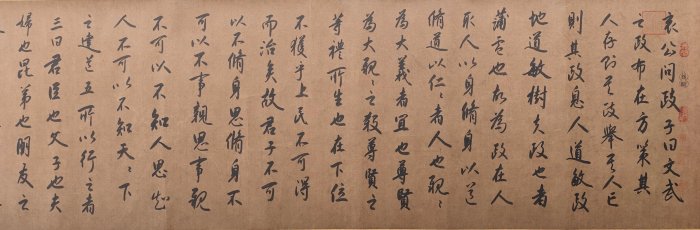 哀公問政子曰文武
之政布在方策其
人存則其政舉其人亡
則其政息人道敏政
地道敏樹夫政也者
蒲盧也故為政在人
取人以身脩身以道
脩道以仁〻者人也親〻
為大義者宜也尊賢
為大親〻之殺尊賢之
等禮所生也在下位
不獲乎上民不可得
而治矣故君子不可
以不脩身思脩身不
可以不事親思事親
不可以不知人思知
人不可以不知天〻下
之達道五所以行之者
三曰君臣也父子也夫
婦也昆弟也朋友之